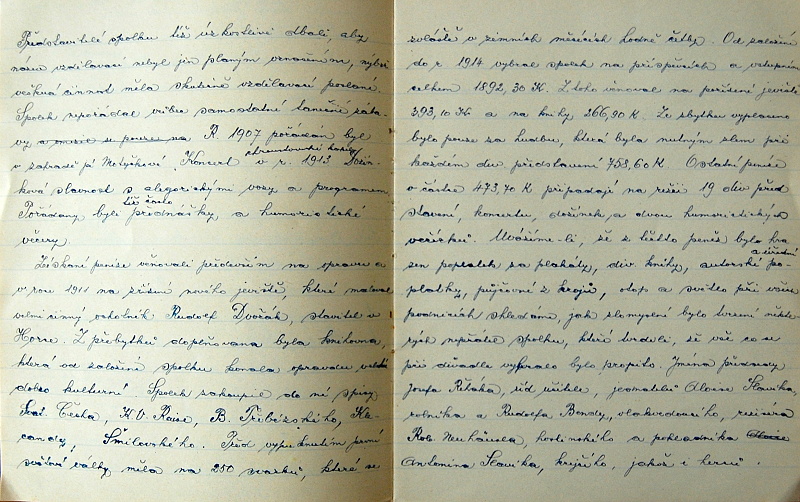 Představitelé spolku též úzkostlivě dbali, aby
název vzdělávací nebyl jen planým vznášením, nýbrž
veškerá činnost měla skutečně vzdělávací poslání.
Spolek nepořádal vůbec samostatné taneční zába-
vy a omezil se pouze na R. 1907 pořádán byl
v zahradě pí Motyčkové „Koncert v r. 1913 Dožín-
ková slavnost s alegorickými vozy a programem
též často
Pořádány byly přednášky a humoristické
večery.
Získané peníze věnovali především na opravu a
v roce 1911 na zřízení nového jeviště, které maloval
velmi činný ochotník Rudolf Dvořák, stavitel v
Horce. Z přebytků doplňována byla knihovna,
která od založení spolku konala opravdu velké
dobro kulturní. Spolek zakoupil do ní spisy
Svat. Čecha, K. V. Raise, B. Třebízského, Kle-
candy, Šmilovského. Před vypuknutím první
světové války měla na 250 svazků, které se
zvláště v zimních měsících hodně četly. Od založení
do r. 1914 vybral spolek na příspěvcích a vstupném
celkem 1892,30 K. Z toho věnoval na pořízení jeviště
393,10 K a na knihy 266,90 K. Ze zbytku vyplaceno
bylo pouze za hudbu, která byla nutným zlem při
každém div. představení 758,60 K. Ostatní peníze
v částce 473,70 K připadají na režii 19 div. před
stavení, koncertu, dožínek a dvou humoristických
večírků. Uvážíme-li, že z těchto peněz bylo hra
a úřední
zen poplatek za plakáty, div. knihy, autorské po-
platky, půjčovné z krojů, otop a světlo při všech
podnicích shledáme, jak zlomyslné bylo tvrzení někte-
rých nepřátel spolku, kteří tvrdili, že vše co se
při divadle vybralo bylo propito. Jména předsedy
Josefa Řeháka, říd. učitele, jednatelů Aloise Slavíka,
rolníka a Rudolfa Bendy, vlakvedoucího, režiséra
Rob. Neuhäusla, hostinského a pokladníka Aloise
Antonína Slavíka, krejčího, jakož i herců.